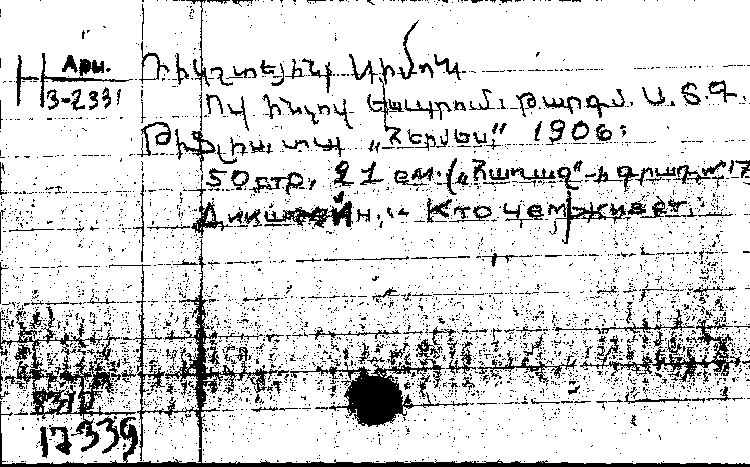 Арм.
3-2331
Դիկշտեյին, Սիմոն
Ով ինչով է ապրում. թարգմ. Ս. Տ. Գ.
Թիֆլիս, տպ. „Հերմես", 1906:
50 стр., 21 см. („Հառաջ"-ի գրադ. № 17
Дикштейн, „ Кто чем живет.
17339